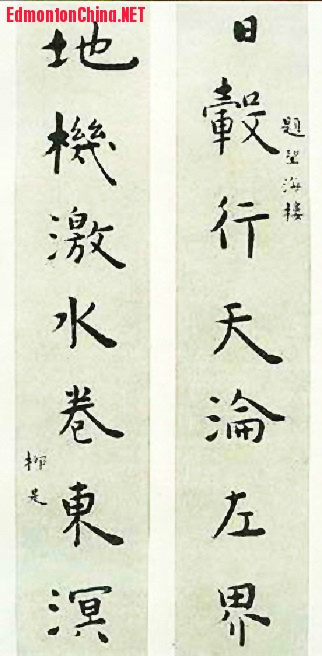 EdmontonChina.NET
日轂行天淪左界
題望海樓
地機激水卷東溟
柳是